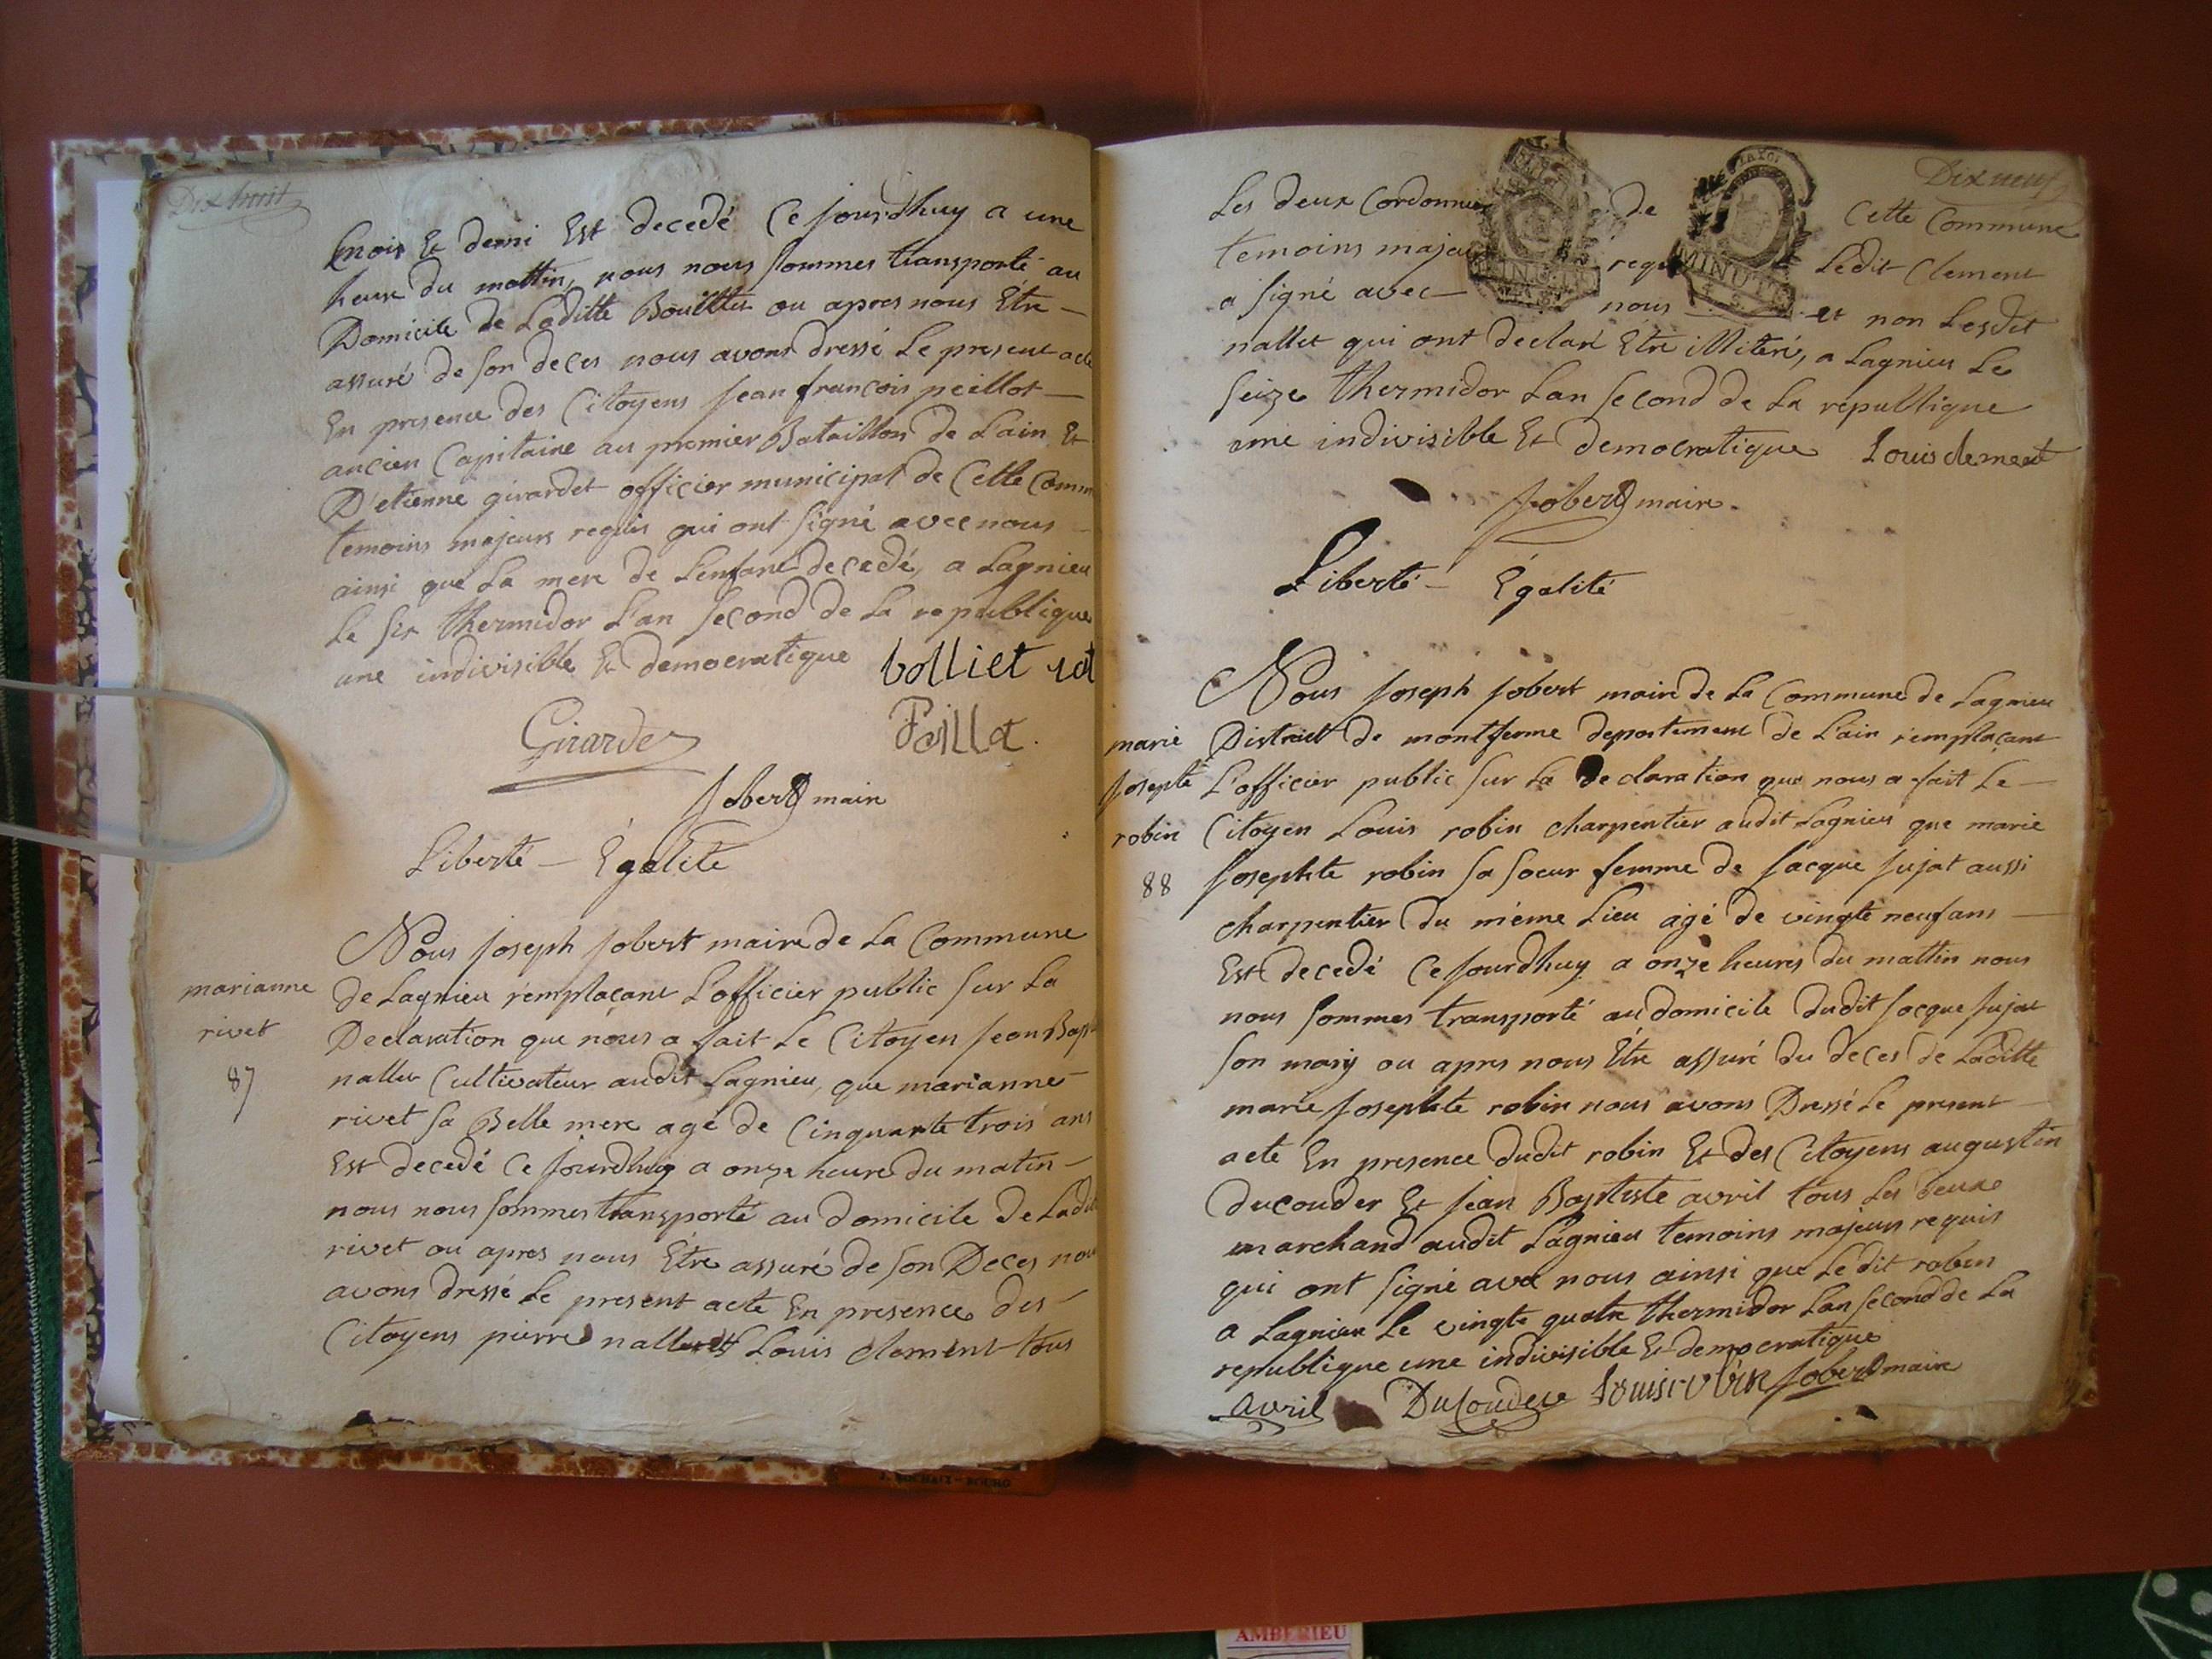 Dix huit
mois Et demi Est decedé Ce jourdhuy a une
heure du mattin, nous nous sommes transporté au
Domicile de Laditte Bouillet ou apres nous Etre
assuré de son deces nous avons dressé Le present acte
En presence des Citoyens jean françois peillot
ancien Capitaine au premier Bataillon de L'ain Et
D'etienne girardet officier municipal de Cette Comm
temoins majeurs requis qui ont signé avec nous
ainsi que La mere de Lenfant decedé, a Lagnieu
Le six thermidor L'an second de La republique
une indivisible Et democratique
Girardet
Jobert maire
Liberté - Égalité
marianne
rivet
87
Nous joseph jobert maire de La Commune
de Lagnieu remplaçant L'officier public sur La
Declaration que nous a fait Le Citoyen jean Bapt
nallet Cultivateur audit Lagnieu, que marianne
rivet sa Belle mere agé de Cinquante trois ans
Est decedé Ce jourdhuy a onze heure du matin
nous nous sommes transporté au domicile De Ladit
rivet ou apres nous Etre assuré de son Deces nou
avons dressé Le present acte En presence des
Citoyens pierre nallet Et Louis clement tous
Dix neuf
Les deux Cordonnier de Cette Commune
temoins majeu requ Ledit Clement
a signé avec nous et non Lesdit
nallet qui ont declaré Etre illiteré, a Lagnieu Le
seize thermidor Lan second de La republique
une indivisible Et democratique Louis clement
Jobert maire
MINUTE
Liberté - Égalité
marie
josephte
robin
88
Nous joseph jobert maire de La Commune de Lagnieu
District de montferme departement de L'ain remplaçant
L'officier public sur La declaration que nous a fait Le
Citoyen Louis robin charpentier audit Lagnieu que marie
josephte robin sa soeur femme de jacque jujat aussi
charpentier du même Lieu agé de vingte neuf ans
Est decedé Ce jourdhuy a onze heures du mattin nous
nous sommes transporté au domicile dudit jacque jujat
son mary ou apres nous Etre assuré du deces de Laditte
marie josephte robin nous avons Dressé Le present
acte En presence dudit robin Et des Citoyens augustin
ducouder Et jean Baptiste avril tous Les deux
marchand audit Lagnieu temoins majeurs requis
qui ont signé avec nous ainsi que Ledit robin
a Lagnieu Le vingte quatre thermidor Lan second de La
republique une indivisible Et democratique
avril Ducouder Louis robin Jobert maire
AMBERIEU